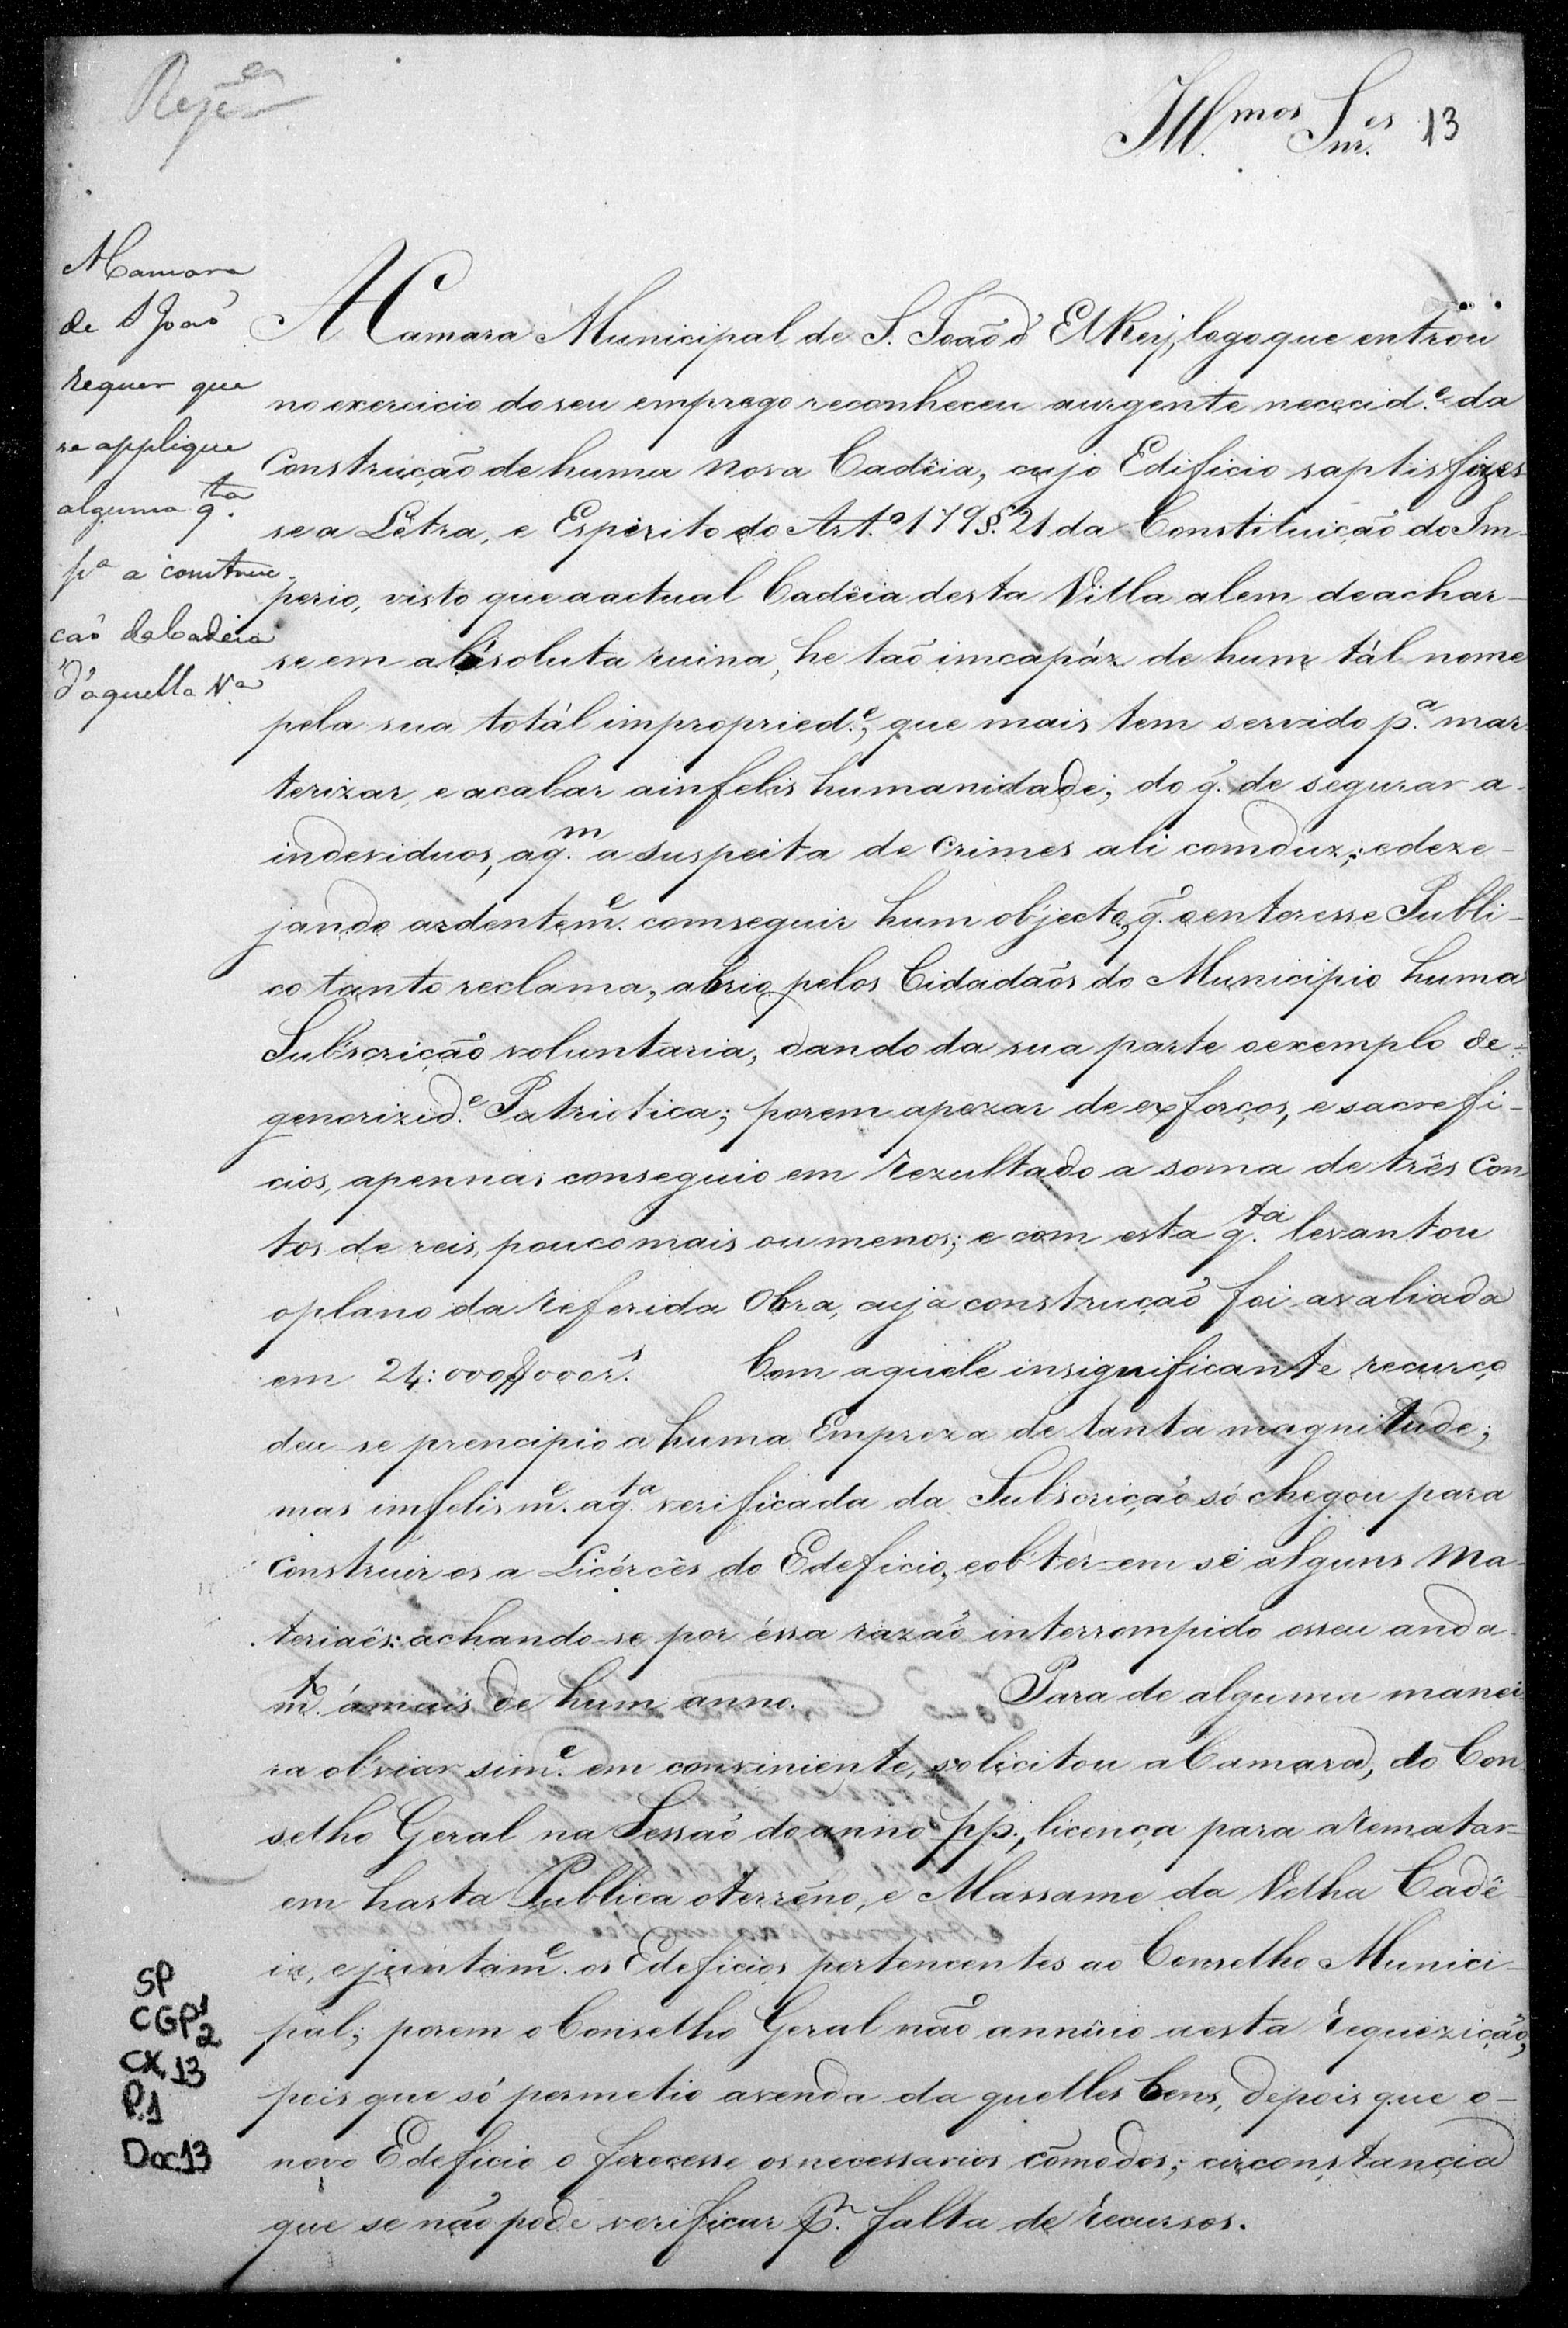 Ill.mos Snr.es 13
A Camara
de S João
requer que
se applique
alguma q.ta
p.a a construc-
cão da Cadeia
d'aquella V.a
A Camara Municipal de S. João d' ElRey, logo que entrou
no exercicio do seu emprego reconheceu aurgente nececid.e da
Construição de huma nova Cadêia, cujo Edificio saptisfizes
se a Lêtra, e Espirito do Art.o 179 §. 21 da Constituição do Im-
perio, visto que a actual Cadêia desta Villa alem de achar-
se em absoluta ruina, he tão imcapáz de hum tál nome
pela sua totál impropried.e, que mais tem servido p.a mar
terizar, e acabar a infelis humanidade; do q. de segurar a-
indeviduos, a q.m a suspeita de Crimes ali comduz; e deze-
jando ardentem.e comseguir hum objecto, q. o enteresse Publi-
co tanto reclama, abrio pelos Cidadãos do Municipio huma
Subscrição voluntaria, dando da sua parte o exemplo de-
genorizid.e Patriotica; porem apezar de exforços, e sacrefi-
cios, apennas conseguio em rezultado a soma de três Con
tos de reis, pouco mais ou menos; e com esta q.ta levantou
o plano da referida Obra, cuja construção foi avaliada
em 24:000$000 r.s Com aquele insignificante recurço
deu-se prencipio a huma Empreza de tanta magnitude;
mas imfelism.e a q.ta verificada da Subscrição só chegou para
Construir os a Licérces do Edeficio, e obter-em se alguns Ma-
teriaês: achando-se por éssa razão interrompido osseu anda-
m.to á mais de hum anno. Para de alguma manei
ra obviar sim.e em conviniente, solicitou a Camara, do Con
selho Geral na Sessão do anno pp., licença para arematar
em hasta Publica o terrêno, e Massame da Velha Cadê-
ia, e juntam.e os Edeficios pertencentes ao Conselho Munici-
pal; porem o Conselho Geral não annûio a esta requizição,
pois que só permetio a venda da quelles bens, depois que o-
novo Edeficio o ferecesse os necessarios cômodos; circonstancia
que se não pode verificar p.r falta de recursos.
SP
CGP1
2
CX.13
P.1
Doc.13